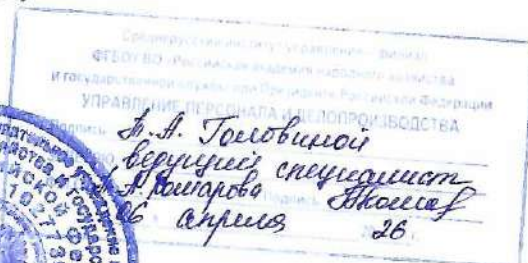 Среднерусский институт управления – филиал
ФГБОУ ВО «Российская академия народного хозяйства
и государственной службы при Президенте Российской Федерации
УПРАВЛЕНИЕ ПЕРСОНАЛА И ДЕЛОПРОИЗВОДСТВА
Подпись Т.А. Головиной
ведущий специалист
А. Комарова Подпись
06 апреля 26 г.